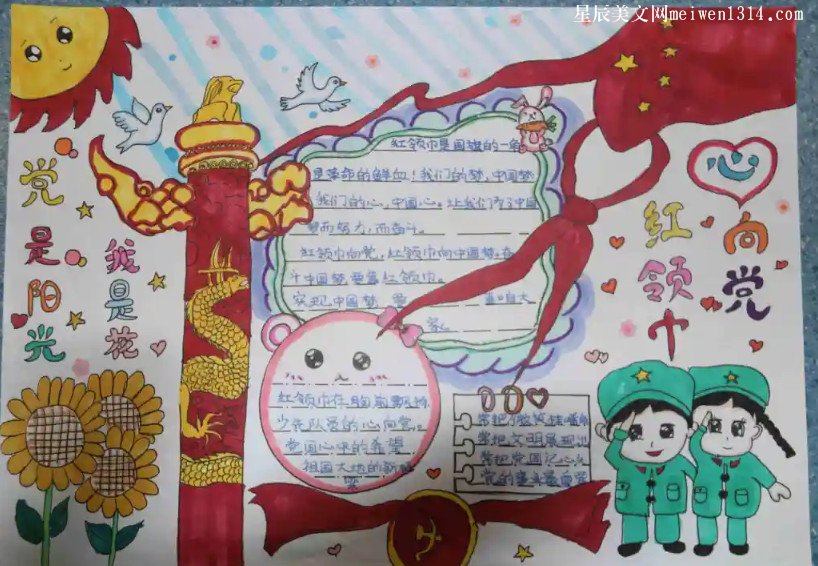 星辰美文网meiwen1314.com
党是阳光
我是花
红领巾
心向党
红领巾是国旗的一角
是革命的鲜血！我们的梦，中国梦
我们的心，中国心。让我们为了中国
梦而努力，而奋斗。
红领巾向党，红领巾向中国梦，奋
斗中国梦
实现中国梦
红领巾在胸前飘扬
少先队员的心向党。
党国心中的希望
祖国大地的新
常把文明展现
常把党国记心头